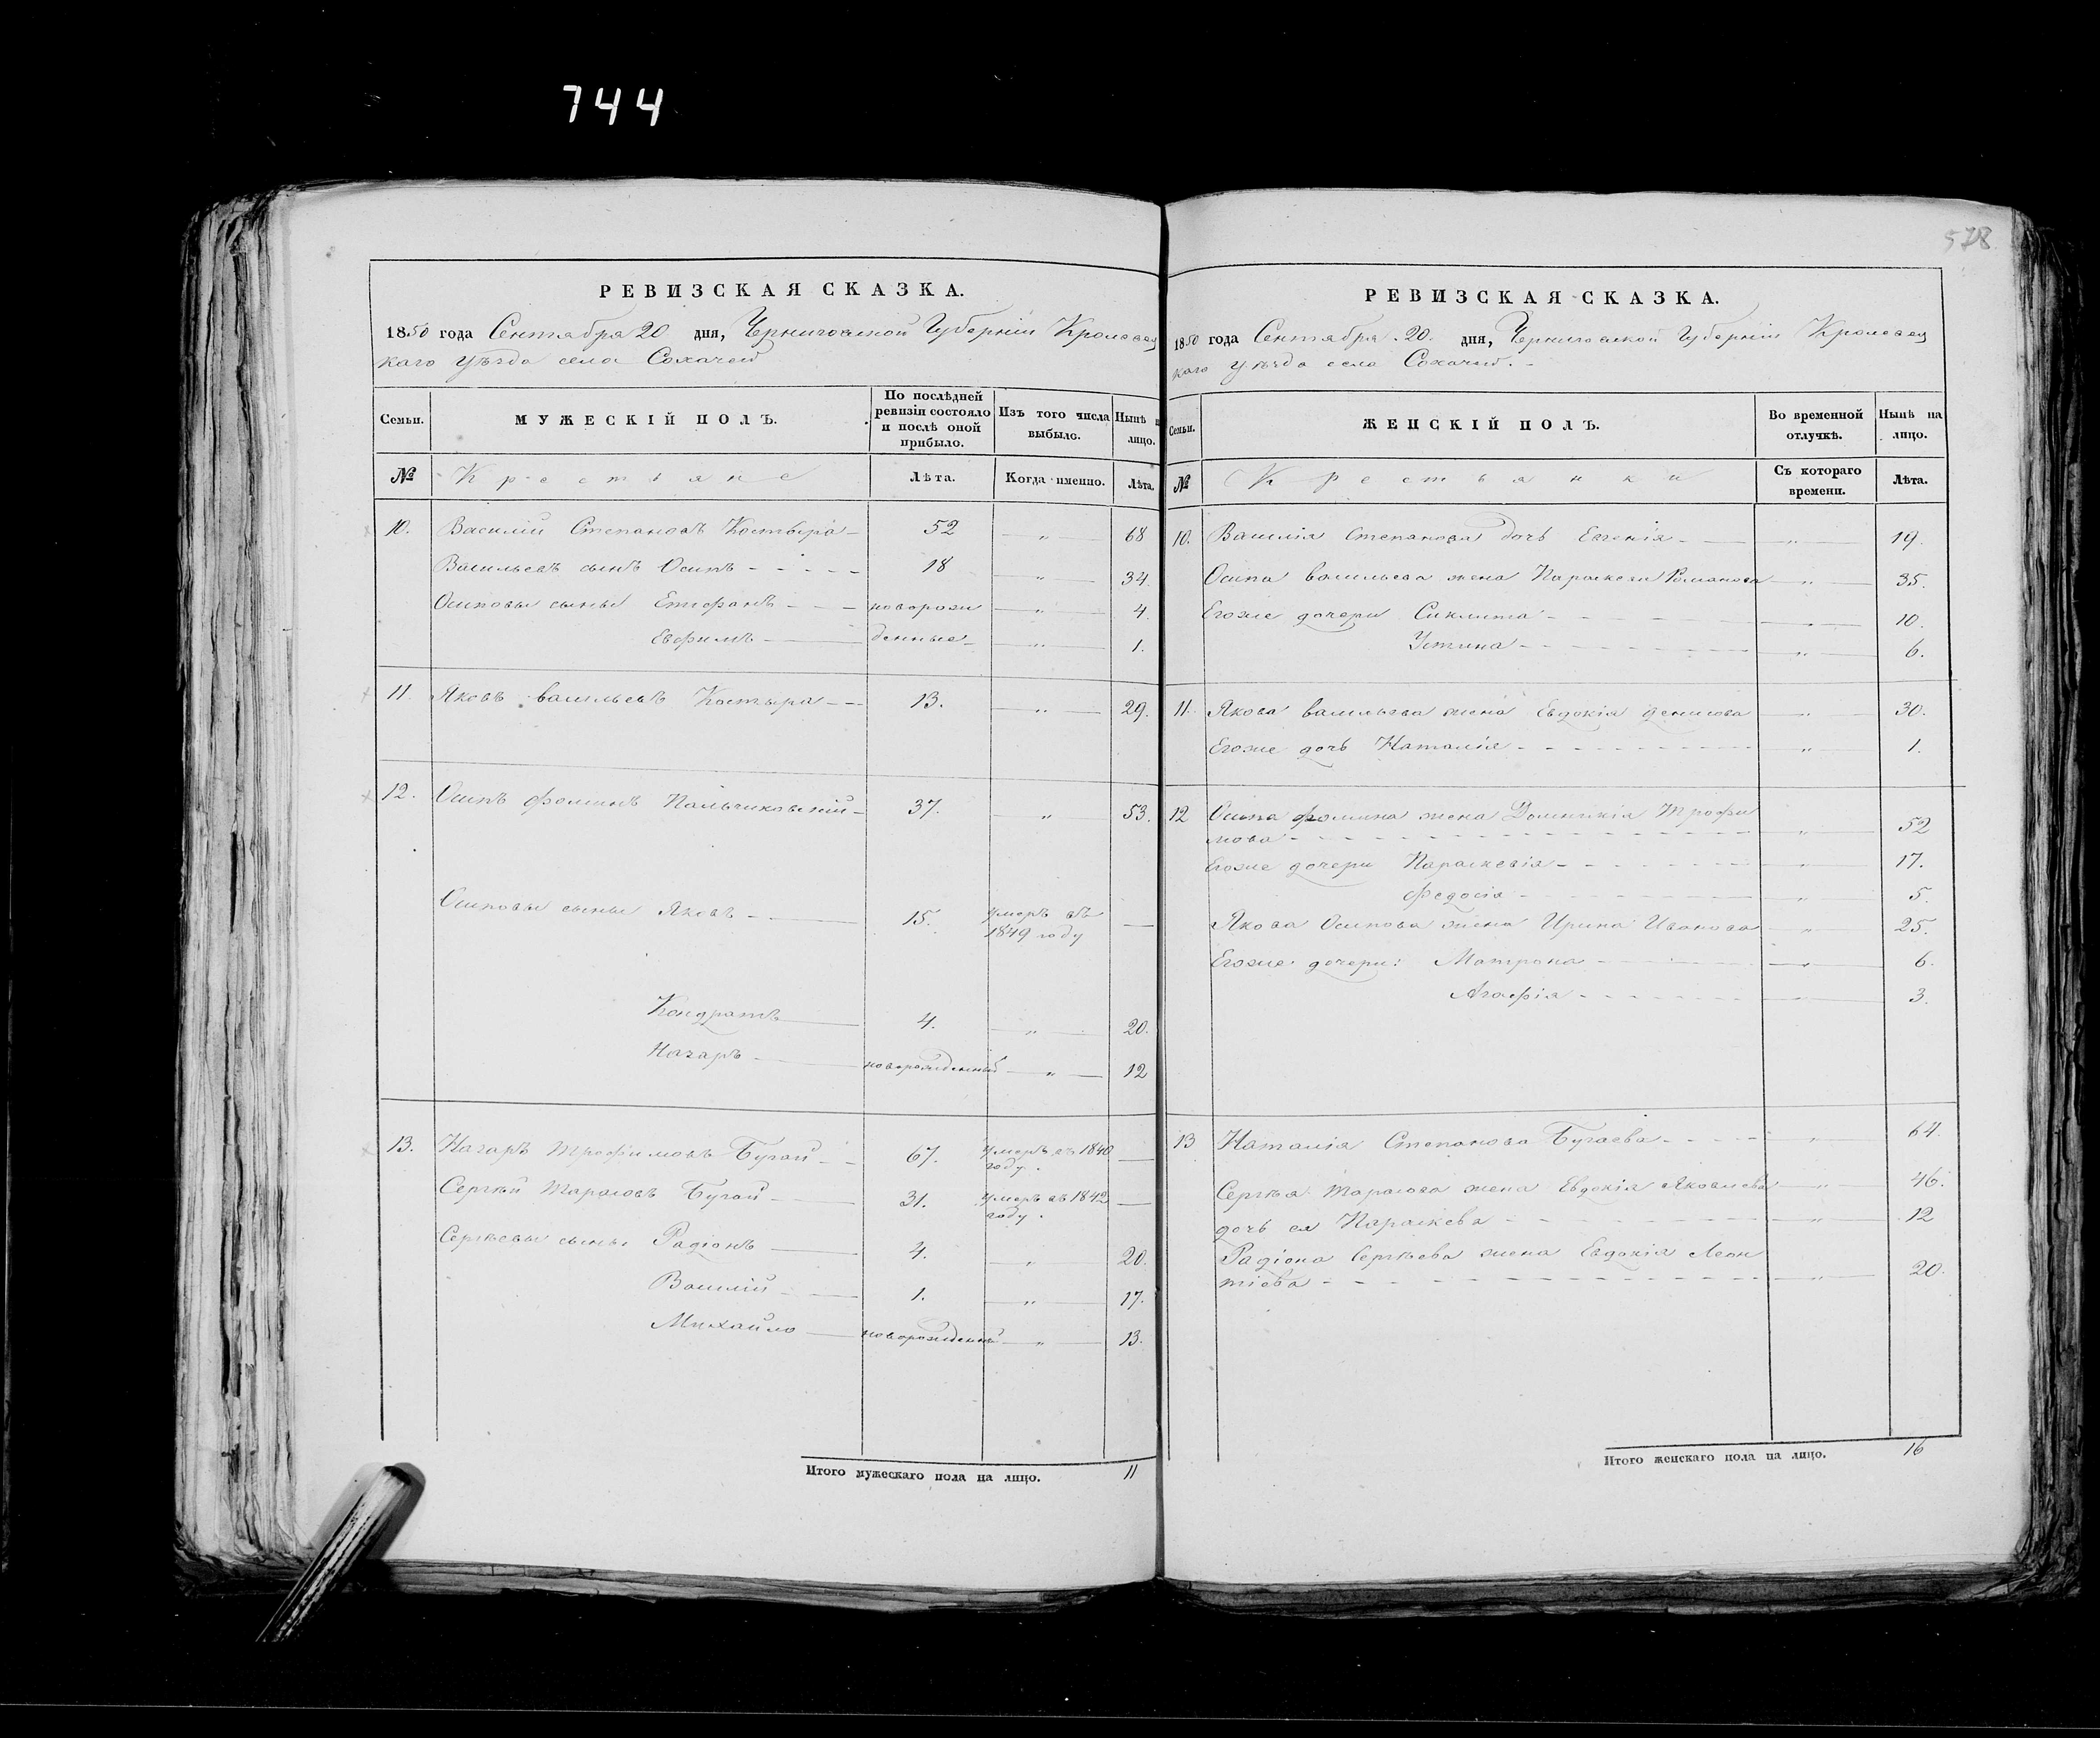 744
578
РЕВИЗСКАЯ СКАЗКА.
1850 года Сентября 20 дня, Черниговской Губерніи Кролевец
каго уѣзда села Сохачей
Семьи. МУЖЕСКІЙ ПОЛЪ. По послѣдней ревизіи состояло и послѣ оной прибыло. Изъ того числа выбыло. Нынѣ н лицо.
№ Крестьяне Лѣта. Когда именно. Лѣта.
10. Василій Степановъ Костыра 52 „ 68
Васильевъ сынъ Осипъ 18 „ 34.
Осиповы сыны Епифанъ новорож „ 4.
Евфимъ денные „ 1.
11. Яковъ Васильевъ Костыра 13. „ 29.
12. Осипъ Фоминъ Пальчиковскій 37. „ 53.
Осиповы сыны Яковъ 15. умеръ въ
1849 году
Кондратъ 4. „ 20.
Назаръ новорожденный „ 12
13. Назаръ Трофимовъ Бугай 67. умеръ въ 1840
году.
Сергѣй Тарасовъ Бугай 31. умеръ въ 1842
году.
Сергѣевы сыны Радіонъ 4. „ 20.
Василій 1. „ 17.
Михайло новорожденный „ 13.
Итого мужескаго пола на лицо. 11
РЕВИЗСКАЯ СКАЗКА.
1850 года Сентября 20. дня, Черниговской Губерніи Кролевец
каго уѣзда села Сохачей.
Семьи. ЖЕНСКІЙ ПОЛЪ. Во временной отлучкѣ. Нынѣ на лицо.
№ Крестьянки Съ котораго времени. Лѣта.
10. Василія Степанова дочь Евгенія „ 19.
Осипа Васильева жена Параскева Романова „ 35.
Егоже дочери Сиклита „ 10.
Устина „ 6.
11. Якова Васильева жена Евдокія Денисова „ 30.
Егоже дочь Наталія „ 1.
12 Осипа Фомина жена Домникія Трофи
мова „ 52
Егоже дочери Параскевія „ 17.
Федосія „ 5.
Якова Осипова жена Ирина Иванова „ 25.
Егоже дочери: Матрона „ 6.
Агафія „ 3.
13 Наталія Степанова Бугаева „ 64.
Сергѣя Тарасова жена Евдокія Яковлева „ 46.
дочь ея Параскева „ 12
Радіона Сергѣева жена Евдокія Леон
тіева „ 20.
Итого женскаго пола на лицо. 16